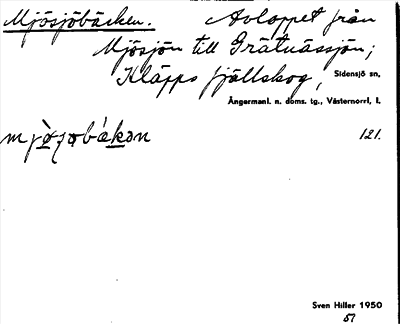 Mjösjöbäcken. Avloppet från
Mjösjön till Grätnässjön;
Kläpps fjällskog, Sidensjö sn,
Ångermanl. n. doms. tg., Västernorrl. l.
121.
Sven Hiller 1950
57